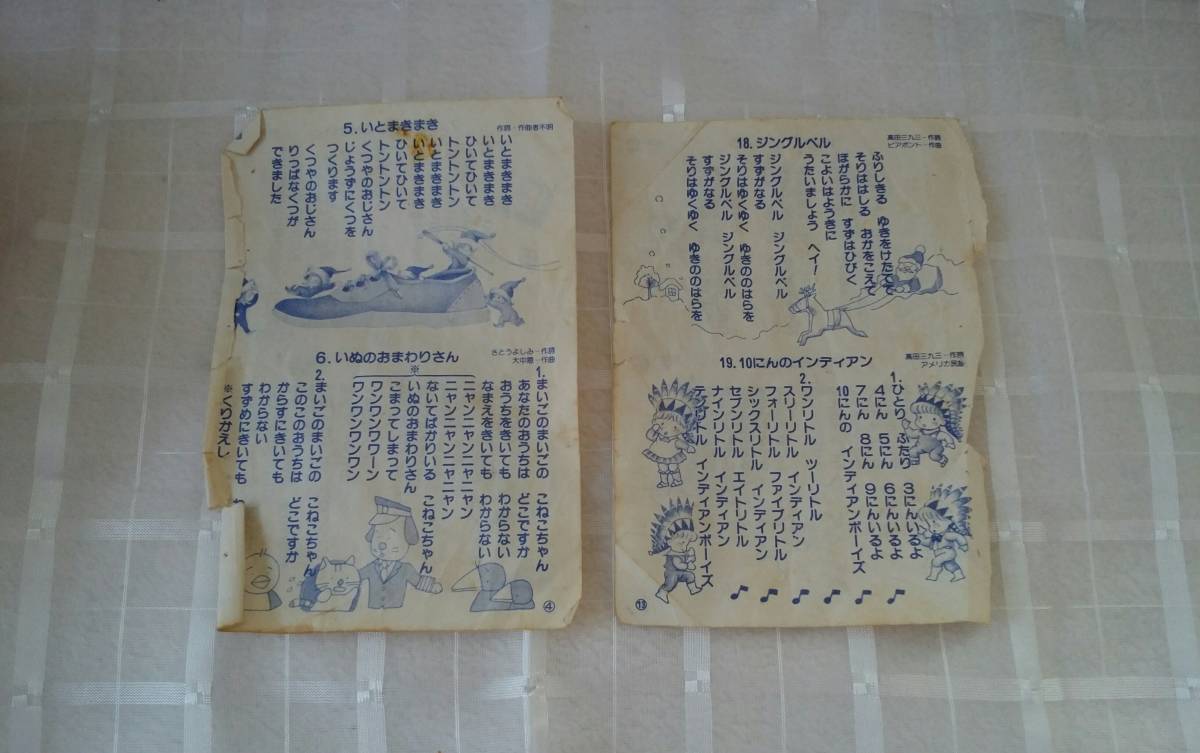 5.いとまきまき
作詞・作曲者不明
いとまきまき
いとまきまき
ひいてひいて
トントントン
いとまきまき
いとまきまき
ひいてひいて
トントントン
くつやのおじさん
じょうずにくつを
つくります
くつやのおじさん
りっぱなくつが
できました
6.いぬのおまわりさん
さとうよしみ―作詞
大中恩―作曲
1.まいごのまいごの こねこちゃん
あなたのおうちは どこですか
おうちをきいても わからない
なまえをきいても わからない
※
ニャンニャンニャンニャン
ニャンニャンニャンニャン
ないてばかりいる こねこちゃん
いぬのおまわりさん
こまってしまって
ワンワンワワーン
ワンワンワンワン
2.まいごのまいごの こねこちゃん
このこのおうちは どこですか
からすにきいても
わからない
すずめにきいても わ
※くりかえし
④
18.ジングルベル
高田三九三―作詞
ピアポント―作曲
ふりしきる ゆきをけたてて
そりははしる おかをこえて
ほがらかに すずはひびく
こよいはようきに
うたいましょう ヘイ!
ジングルベル ジングルベル
すずがなる
そりはゆくゆく ゆきののはらを
ジングルベル ジングルベル
すずがなる
そりはゆくゆく ゆきののはらを
19.10にんのインディアン
高田三九三―作詞
アメリカ民謡
1.ひとり ふたり 3にんいるよ
4にん 5にん 6にんいるよ
7にん 8にん 9にんいるよ
10にんの インディアンボーイズ
2.ワンリトル ツーリトル
スリーリトル インディアン
フォーリトル ファイブリトル
シックスリトル インディアン
セブンリトル エイトリトル
ナインリトル インディアン
テンリトル インディアンボーイズ
⑬